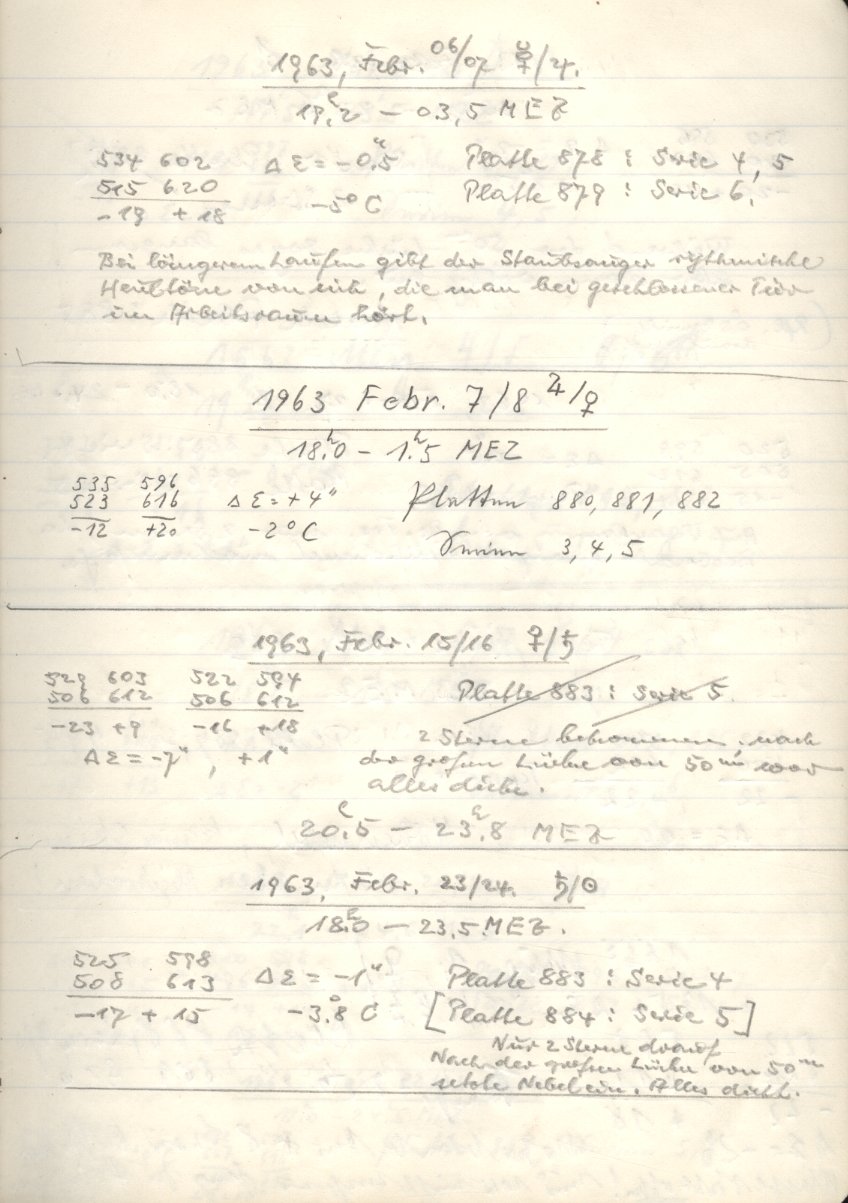 1963, Febr. 06/07 ☿/♃.
19ʰ,2 – 03,5 MEZ
534 602 Δε = -0,5" Platte 878 : Serie 4, 5
515 620 -5° C Platte 879 : Serie 6.
-19 +18
Bei längerem Laufen gibt der Staubsauger rythmische
Heultöne von sich, die man bei geschlossener Tür
im Arbeitsraum hört.
1963 Febr. 7/8 ♃/♀
18ʰ,0 – 1ʰ,5 MEZ
535 596
523 616 Δε = +4" Platten 880, 881, 882
-12 +20 -2° C
3, 4, 5
1963, Febr. 15/16 ♀/♄
529 603 522 594 Platte 883 : Serie 5.
506 612 506 612
-23 +9 -16 +18 2 Sterne bekommen, nach
Δε = -7", +1" der großen Lücke von 50ᵐⁱⁿ war
alles dicht.
20ʰ,5 – 23ʰ,8 MEZ
1963, Febr. 23/24. ♄/☉
18ʰ,0 – 23,5 MEZ.
525 598 Δε = -1" Platte 883 : Serie 4
508 613
-17 + 15 -3,8° C [Platte 884 : Serie 5]
Nur 2 Sterne drauf
Nach der großen Lücke von 50ᵐⁱⁿ
setzte Nebel ein. Alles dicht.